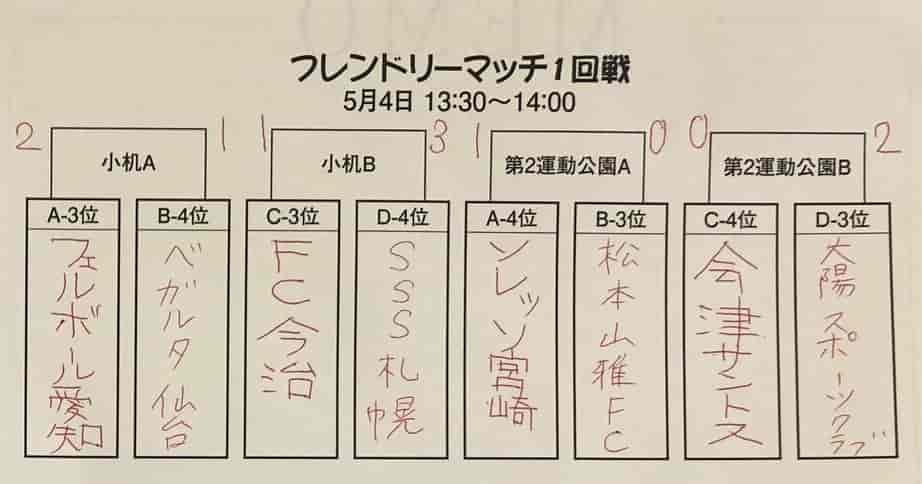 フレンドリーマッチ1回戦
5月4日 13:30〜14:00
2 小机A 1
1 小机B 3
1 第2運動公園A 0
0 第2運動公園B 2
A-3位
フェルボール愛知
B-4位
ベガルタ仙台
C-3位
FC今治
D-4位
SSS札幌
A-4位
ソレッソ宮崎
B-3位
松本山雅FC
C-4位
会津サントス
D-3位
太陽スポーツクラブ